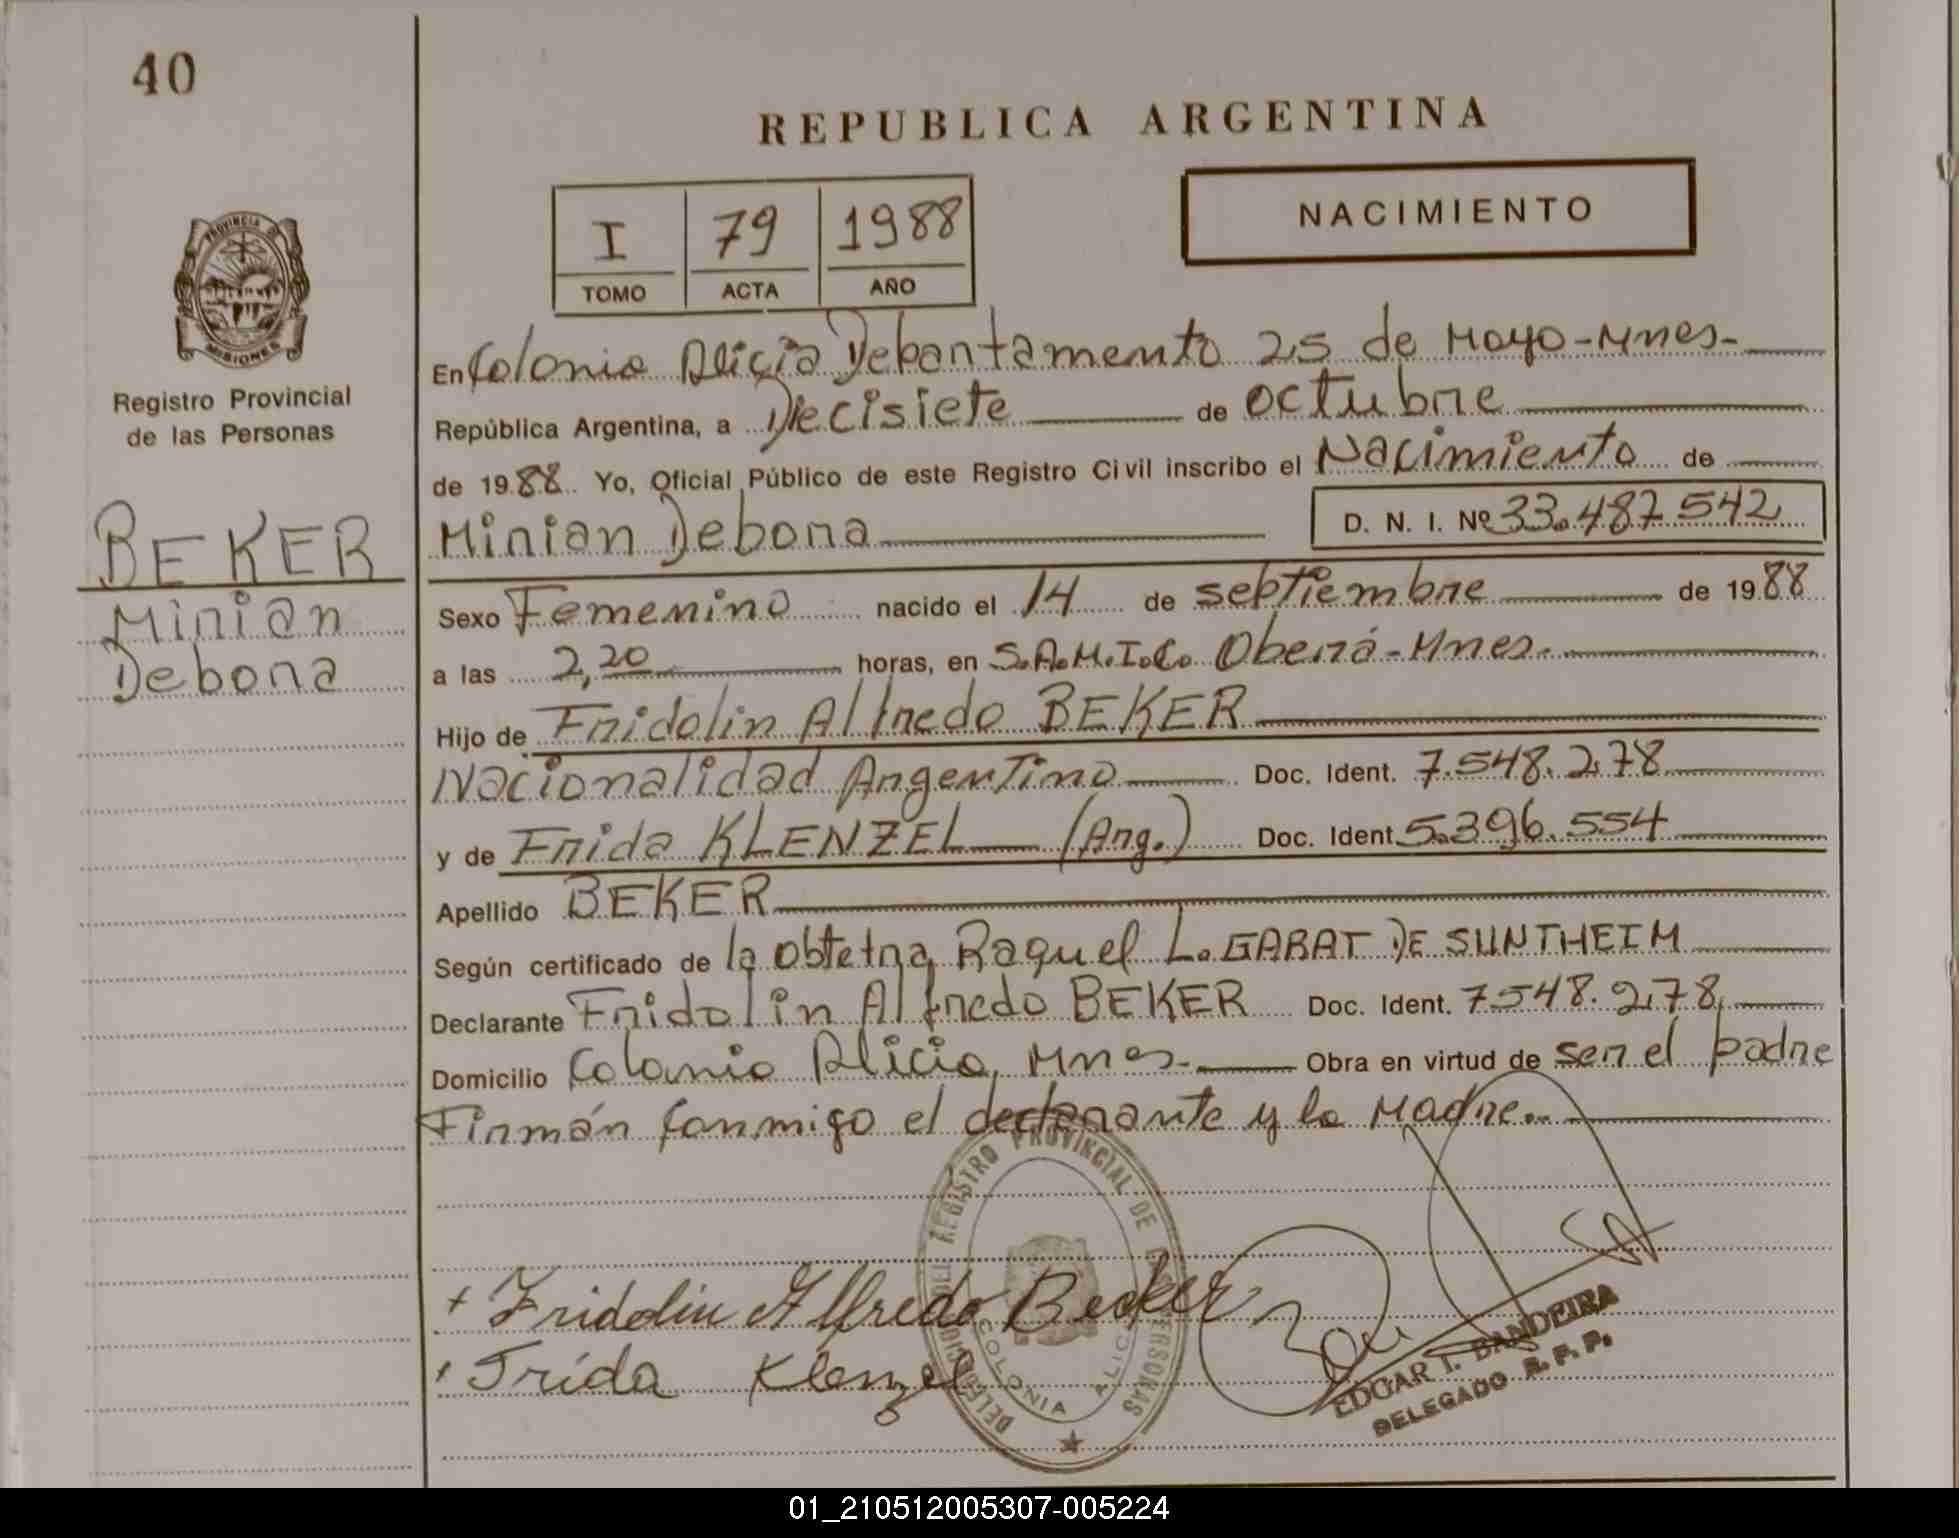 40
REPUBLICA ARGENTINA
I 79 1988
TOMO ACTA AÑO
NACIMIENTO
PROVINCIA DE MISIONES
Registro Provincial
de las Personas
BEKER
Mirian
Debora
En Colonia Alicia Departamento 25 de Mayo-Mnes-
República Argentina, a Diecisiete de octubre
de 1988. Yo, Oficial Público de este Registro Civil inscribo el Nacimiento de
Mirian Debora D. N. I. Nº 33.487.542
Sexo Femenino nacido el 14 de septiembre de 1988
a las 2,20 horas, en S.A.M.I.C. Oberá-Mnes.
Hijo de Fridolin Alfredo BEKER
Nacionalidad Argentino Doc. Ident. 7.548.278
y de Frida KLENZEL (Arg.) Doc. Ident. 5.396.554
Apellido BEKER
Según certificado de la obtetra Raquel L. GABAT DE SUNTHEIM
Declarante Fridolin Alfredo BEKER Doc. Ident. 7548.278,
Domicilio Colonia Alicia, Mnes- Obra en virtud de ser el padre
Firmán conmigo el declarante y la Madre..
DELEGACION DEL REGISTRO PROVINCIAL DE LAS PERSONAS
COLONIA ALICIA
+ Fridolin Alfredo Becker
+ Frida Klenzel
EDGAR I. BANDEIRA
DELEGADO R. P. P.
01_210512005307-005224